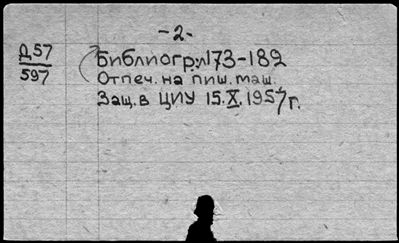 -2-
Д57
597
Библиогр.: л173-182
Отпеч. на пиш. маш.
Защ. в ЦИУ 15.X.1957г.